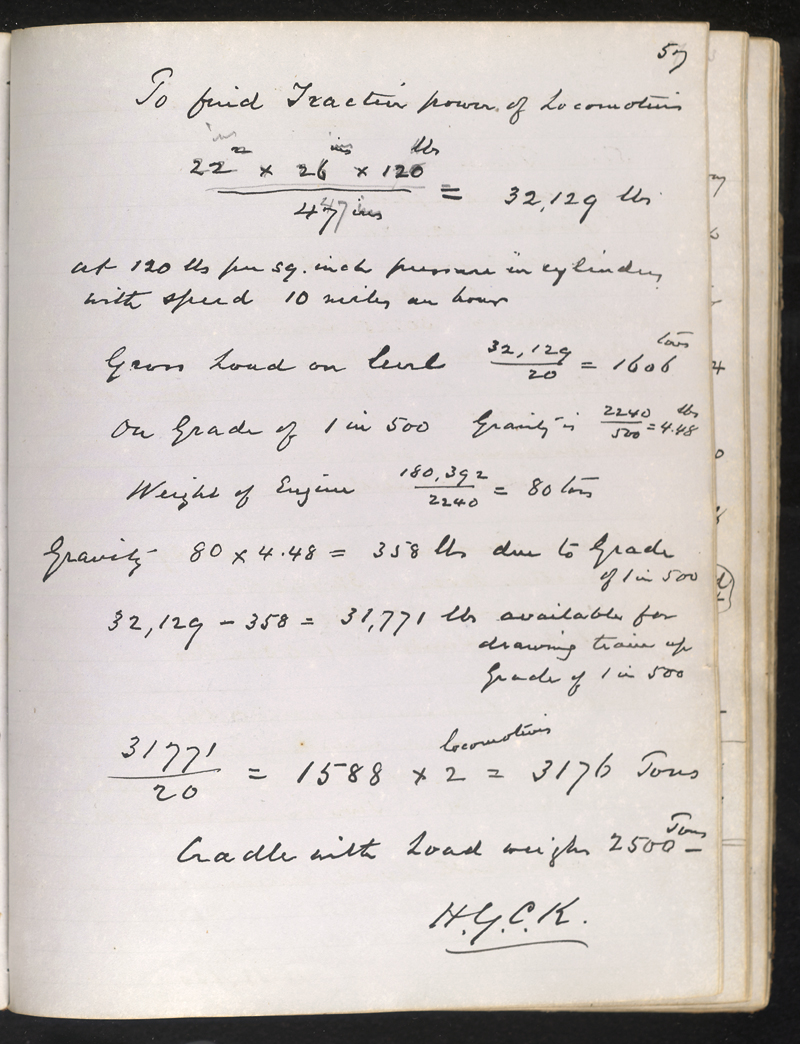 57
To find Tractive power of Locomotives
ins ins lbs
22² x 26 x 120 / 47 ins = 32,129 lbs
at 120 lbs per sq. inch pressure in cylinders
with speed 10 miles an hour
Gross Load on level 32,129 / 20 = 1606 tons
On Grade of 1 in 500 Gravity is 2240 / 500 = 4.48 lbs
Weight of Engine 180,392 / 2240 = 80 tons
Gravity 80 x 4.48 = 358 lbs due to Grade
of 1 in 500
32,129 - 358 = 31,771 lbs available for
drawing train up
Grade of 1 in 500
31771 / 20 = 1588 x 2 locomotives = 3176 Tons
Cradle with Load weighs 2500 Tons -
H.G.C.K.